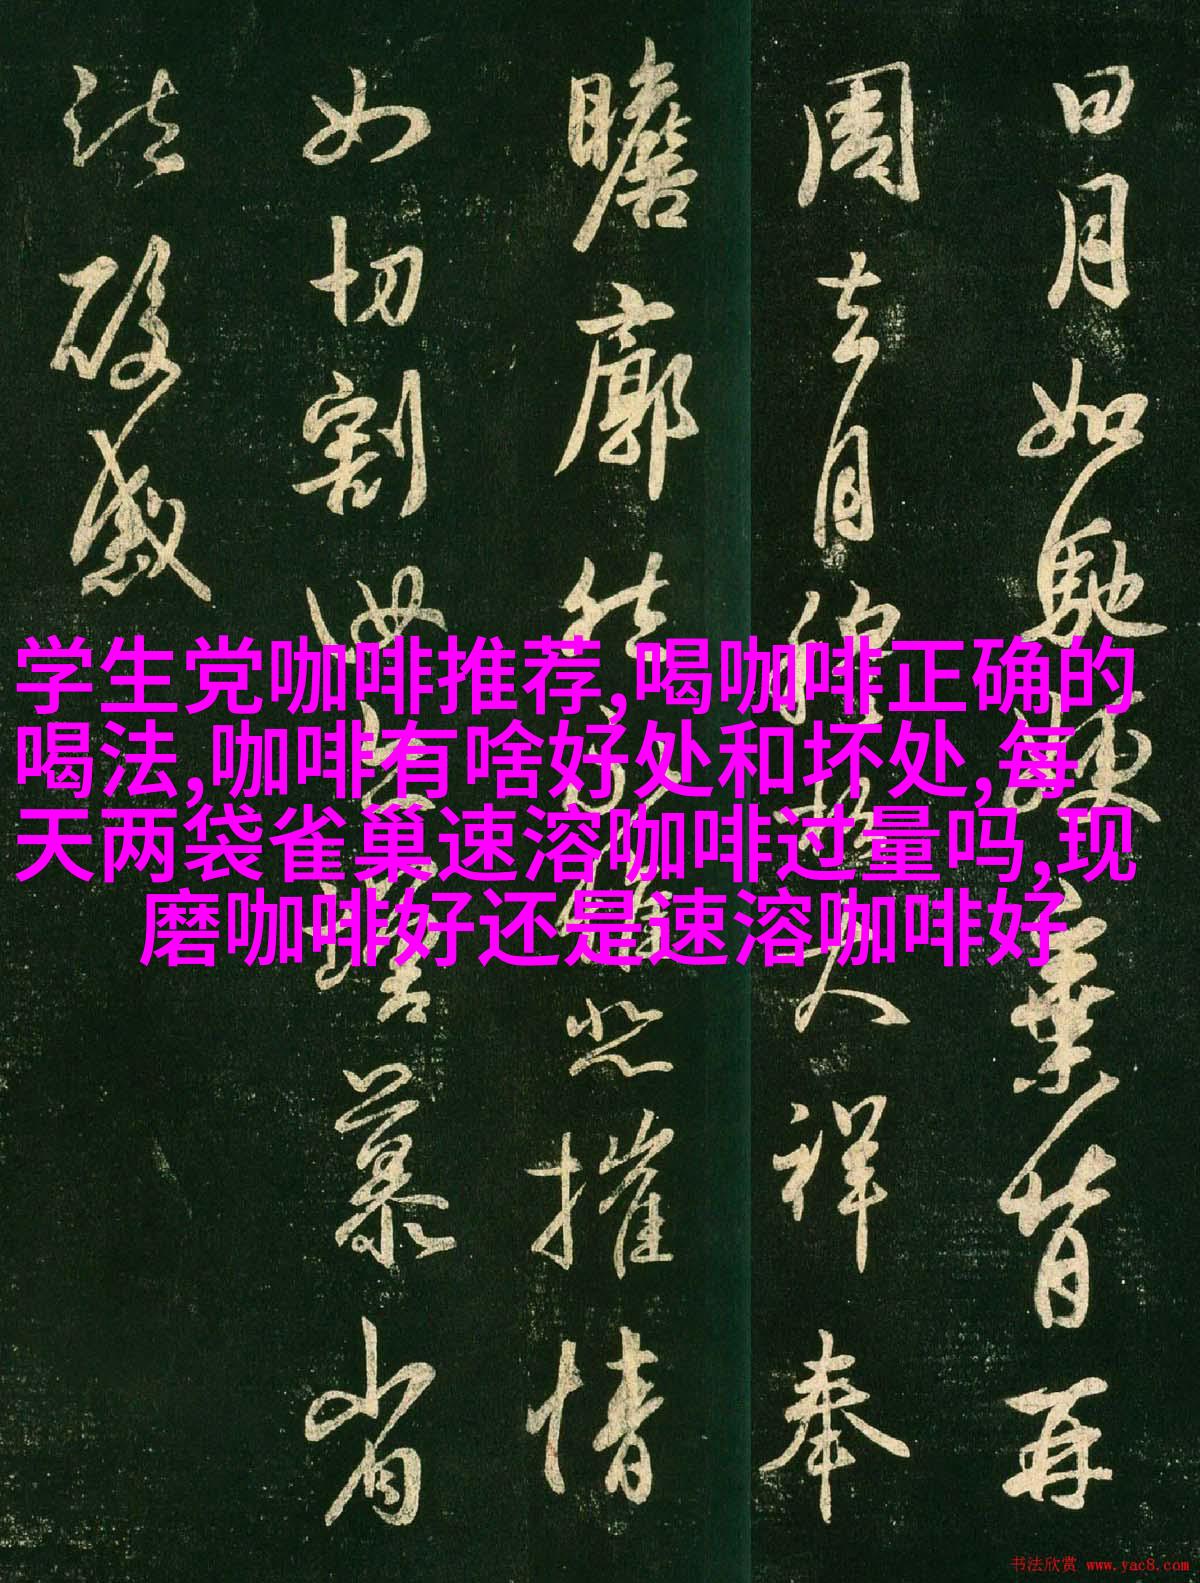 日月如馳棄背再
周去月祥奉
瞻廓然悲摧情
如切割汝慕省
疏酸感
学生党咖啡推荐,喝咖啡正确的
喝法,咖啡有啥好处和坏处,每
天两袋雀巢速溶咖啡过量吗,现
磨咖啡好还是速溶咖啡好
书法欣赏 www.yac8.com